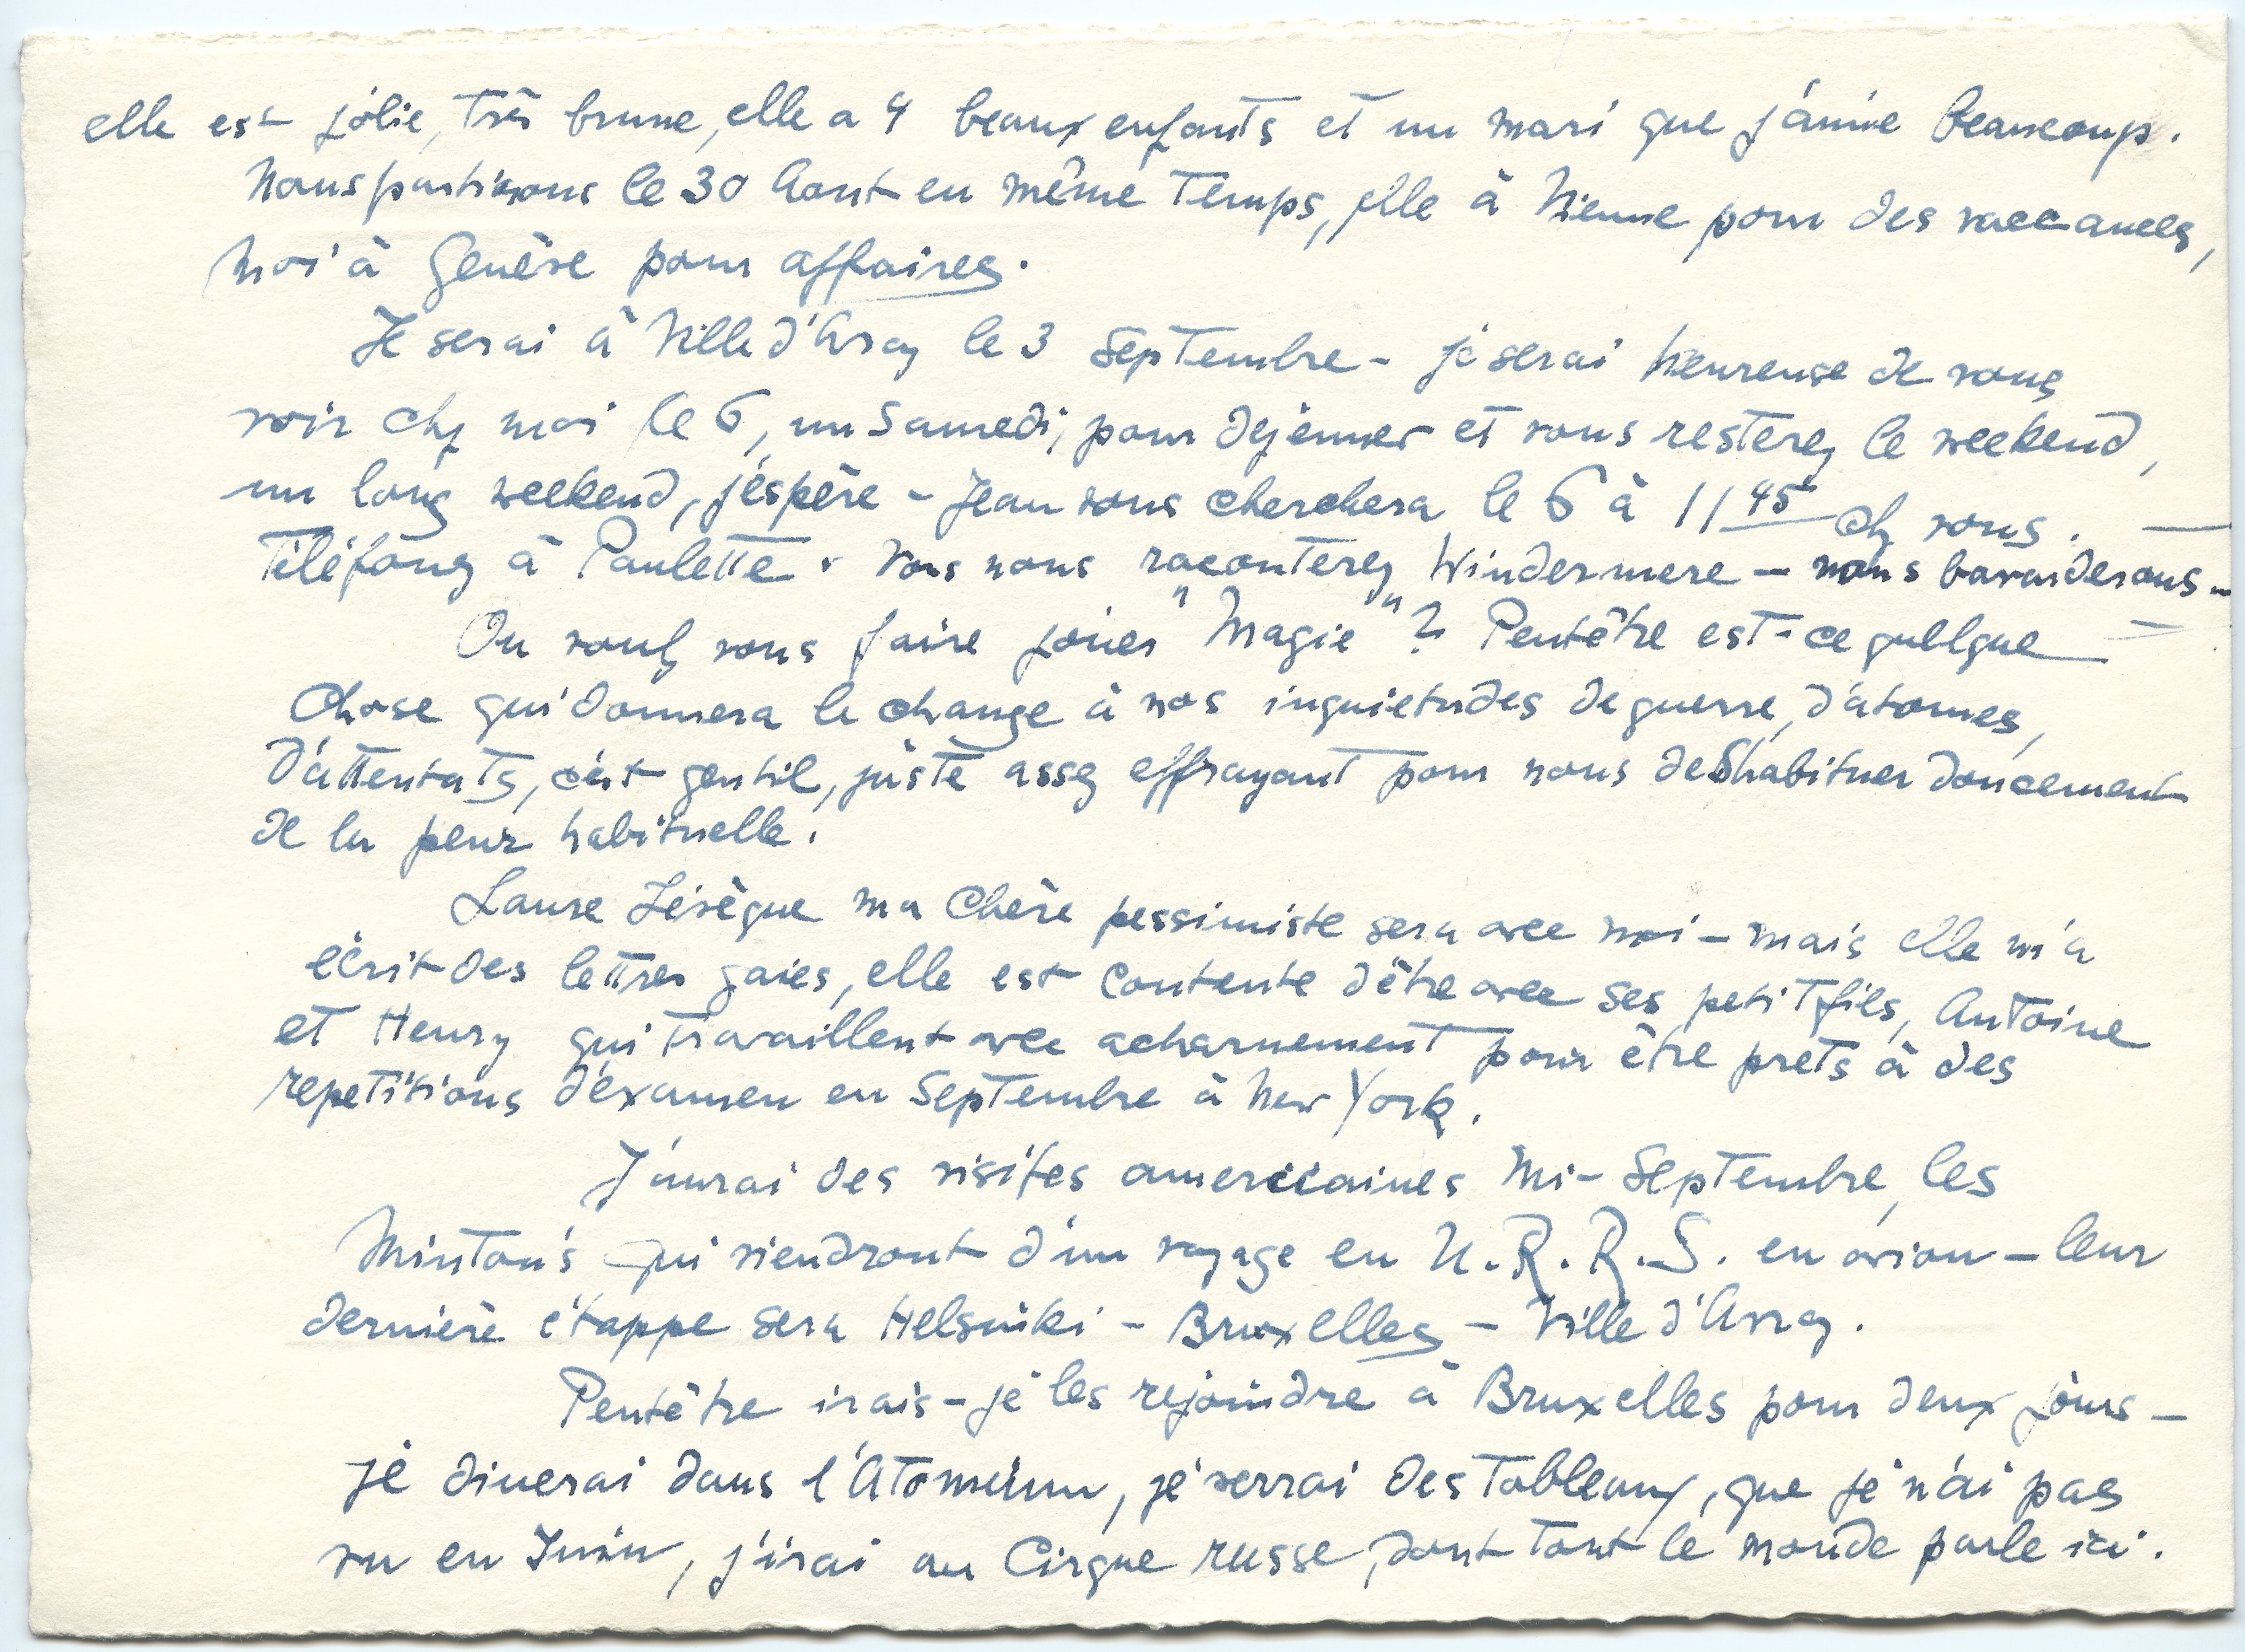 elle est jolie, très brune, elle a 4 beaux enfants et un mari que j'aime beaucoup.
Nous partirons le 30 Aout en même temps, elle à Vienne pour des vaccances,
moi à Genève pour affaires.
Je serai à Ville d'Avray le 3 Septembre - je serai heureuse de vous
voir chez moi le 6, un Samedi, pour dejeuner et vous resterez le weekend,
un long weekend, j'éspère - Jean vous cherchera le 6 à 11 45 chez vous. —
Téléfonez à Paulette. Vous nous raconterez Windermere — nous bavarderons -
Ou voulez vous faire jouer "Magie"? Peutêtre est-ce quelque
chose qui donnera le change à nos inquietudes de guerre, d'atomes,
d'attentats, c'est gentil, juste assez effrayant pour nous deshabituer doucement
de la peur habituelle.
Laure Lévèque ma chère pessimiste sera avec moi - mais elle m'a
écrit des lettres gaies, elle est contente d'être avec ses petitfils, Antoine
et Henry qui travaillent avec acharnement pour être prets à des
repetitions d'éxamen en Septembre à New York.
J'aurai des visites americaines mi-Septembre, les
Minton's qui viendront d'un voyage en U.R.R.S. en avion - leur
dernière étappe sera Helsinki - Bruxelles - Ville d'Avray.
Peutêtre irais-je les rejoindre à Bruxelles pour deux jours -
je dinerai dans l'Atomium, je verrai des tableaux, que je n'ai pas
vu en Juin, j'irai au Cirque russe, dont tout le monde parle ici.